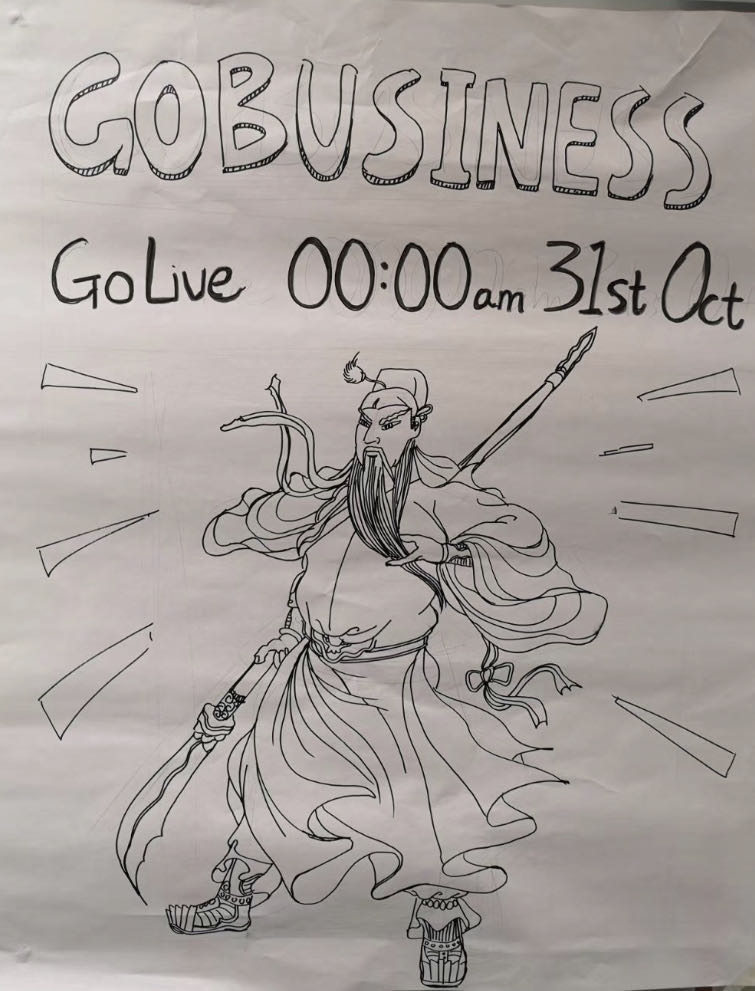 GOBUSINESS
Go Live 00:00am 31st Oct